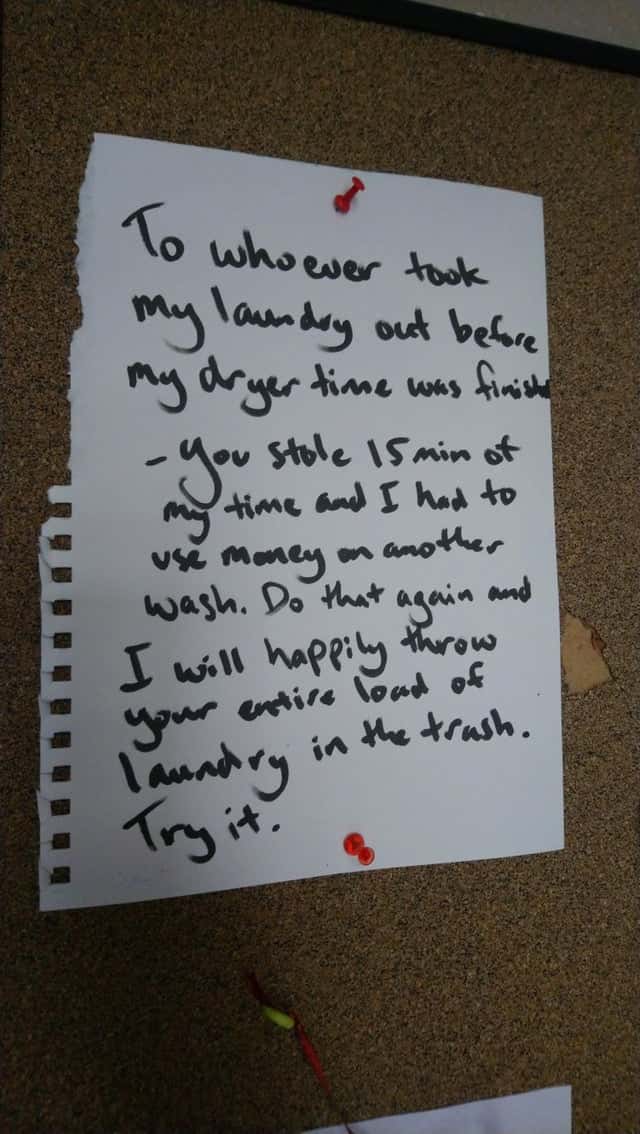 To whoever took
my laundry out before
my dryer time was finished
- You stole 15 min of
my time and I had to
use money on another
wash. Do that again and
I will happily throw
your entire load of
laundry in the trash.
Try it.